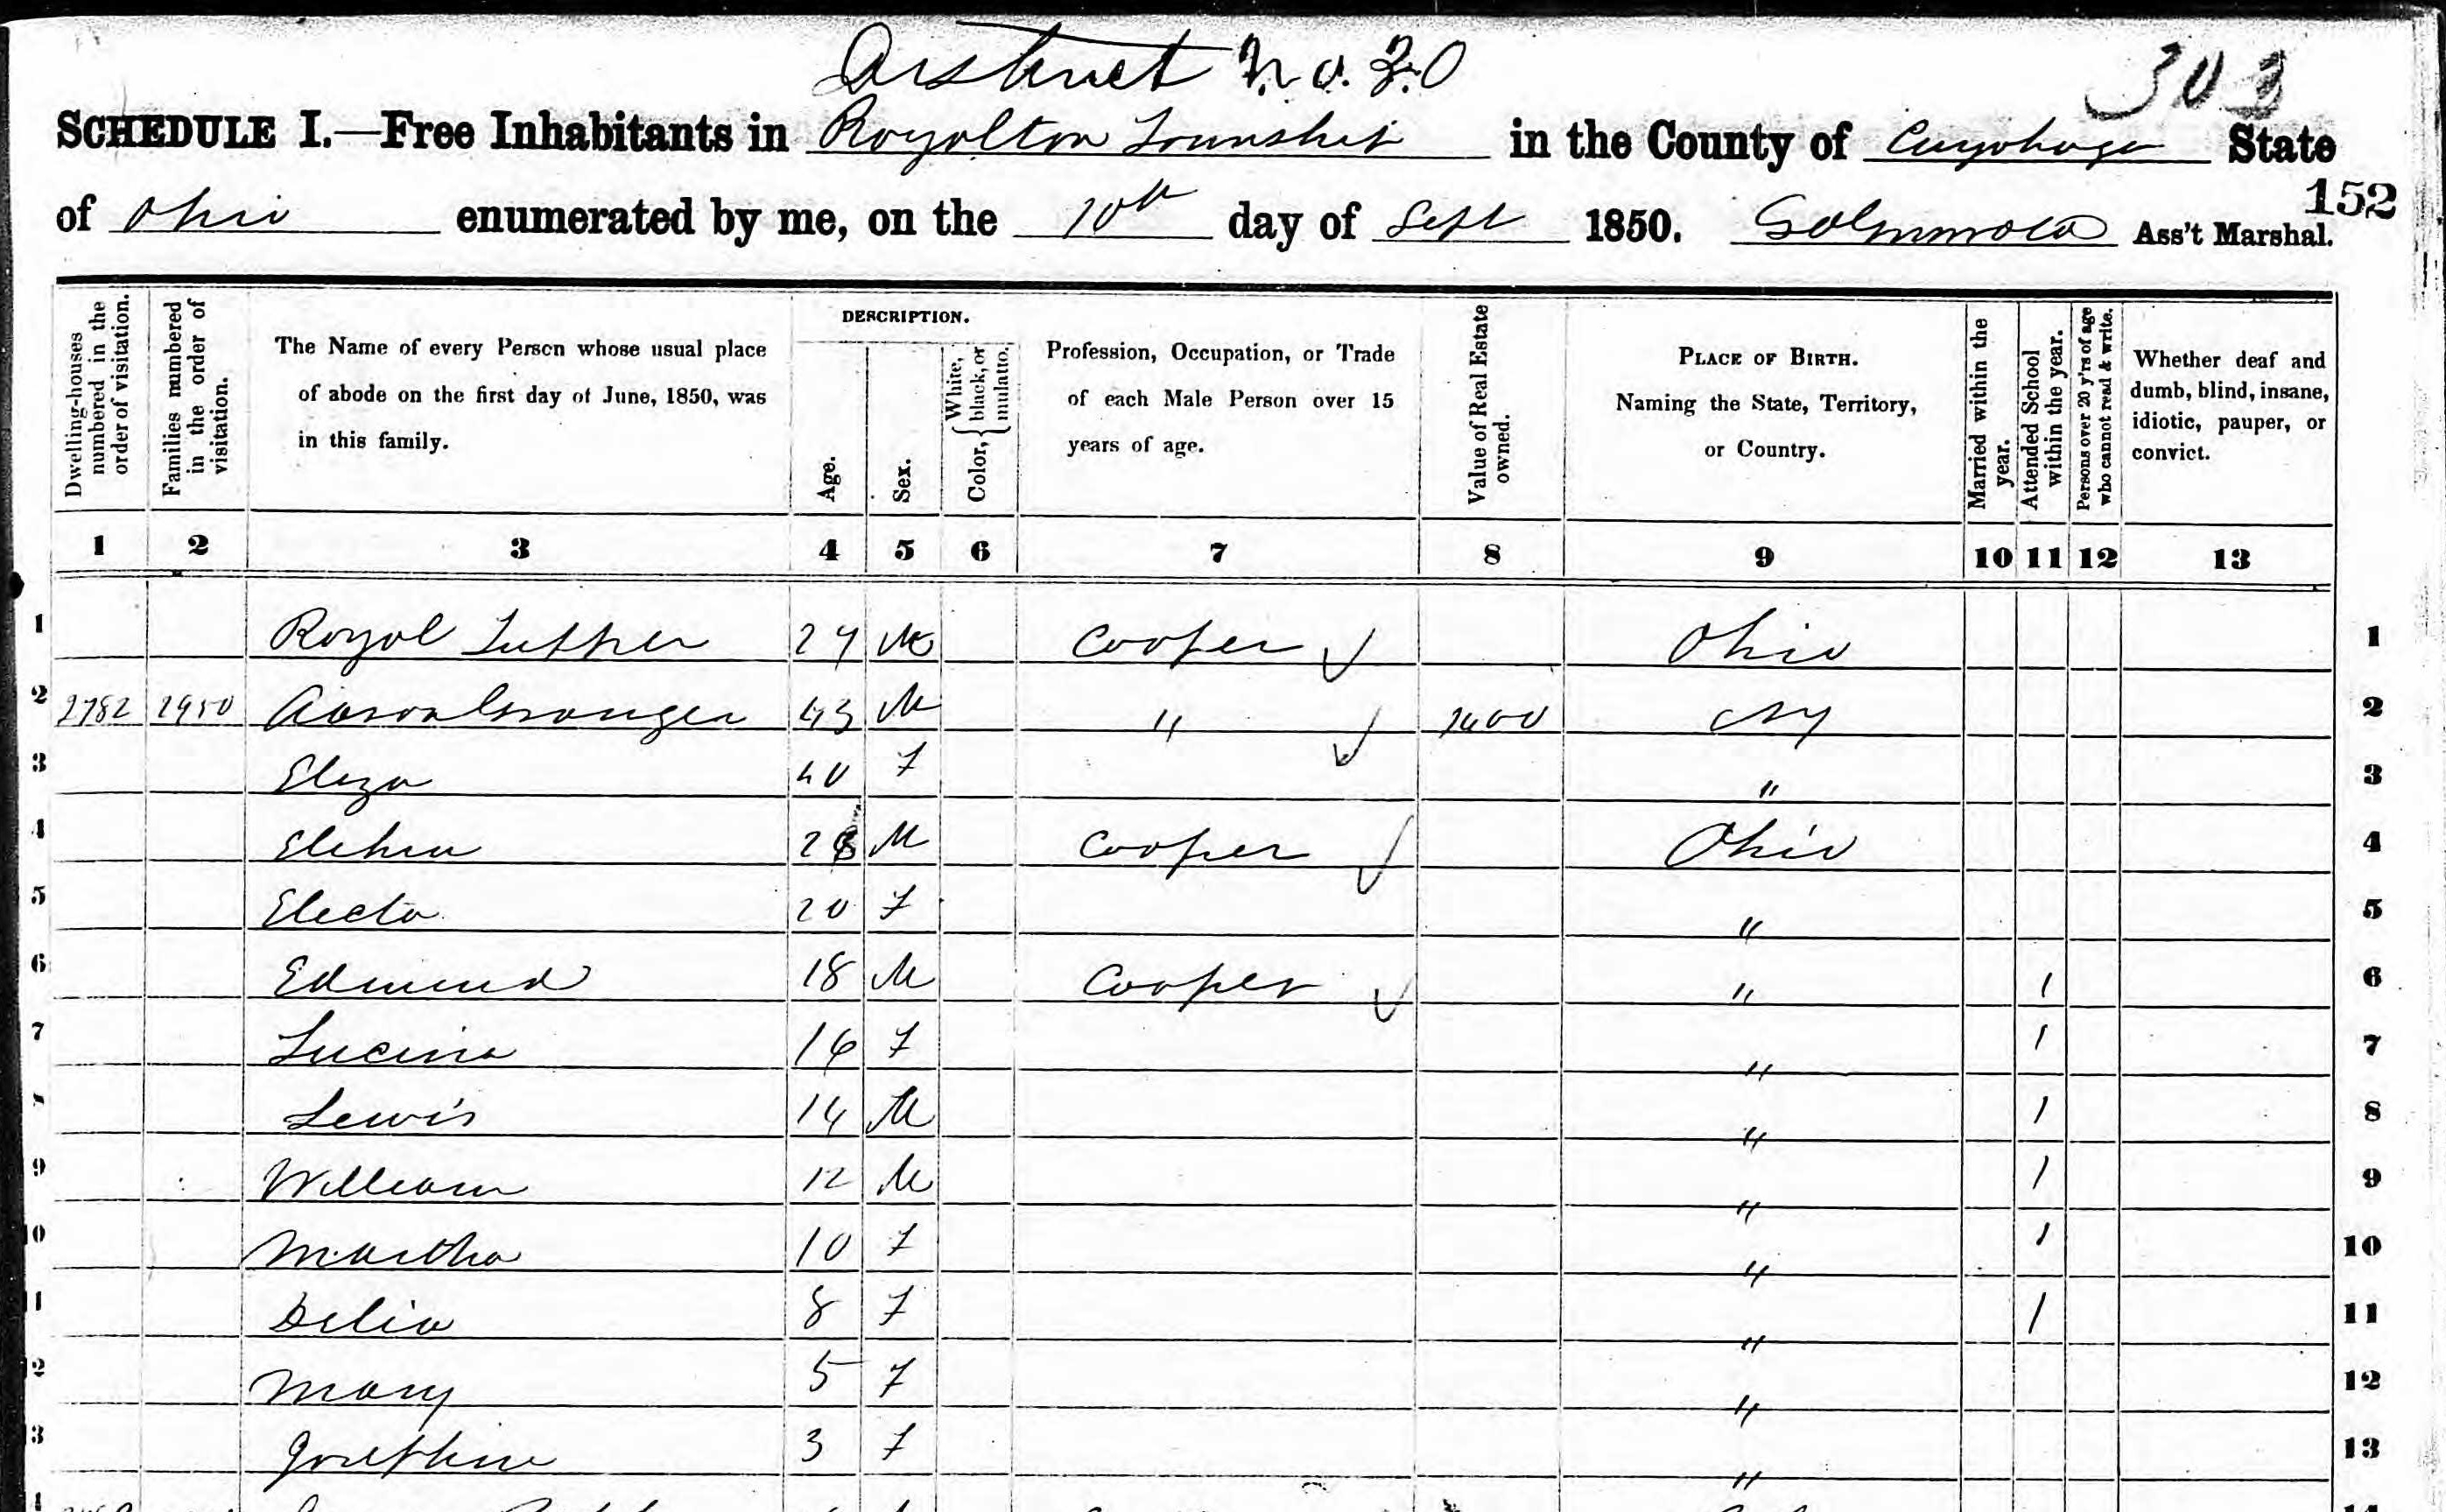 District No. 20
303
SCHEDULE I.—Free Inhabitants in Royalton Township in the County of Cuyahoga State
152
of Ohio enumerated by me, on the 10th day of Sept 1850. Ass't Marshal.
Dwelling-houses numbered in the order of visitation.
Families numbered in the order of visitation.
The Name of every Person whose usual place of abode on the first day of June, 1850, was in this family.
DESCRIPTION.
Age.
Sex.
Color, { White, black, or mulatto.
Profession, Occupation, or Trade of each Male Person over 15 years of age.
Value of Real Estate owned.
PLACE OF BIRTH. Naming the State, Territory, or Country.
Married within the year.
Attended School within the year.
Persons over 20 y'rs of age who cannot read & write.
Whether deaf and dumb, blind, insane, idiotic, pauper, or convict.
1 2 3 4 5 6 7 8 9 10 11 12 13
1 Royal Luther 27 M Cooper Ohio 1
2 2782 2950 Aaron Granger 43 M " 1400 NY 2
3 Eliza 40 F " 3
4 Elehu M Cooper Ohio 4
5 Electa 20 F " 5
6 Edmund 18 M Cooper " 1 6
7 Lucina 16 F " 1 7
8 Lewis 14 M " 1 8
9 William 12 M " 1 9
10 Martha 10 F " 1 10
11 Delia 8 F " 1 11
12 Mary 5 F " 12
13 Josephine 3 F " 13